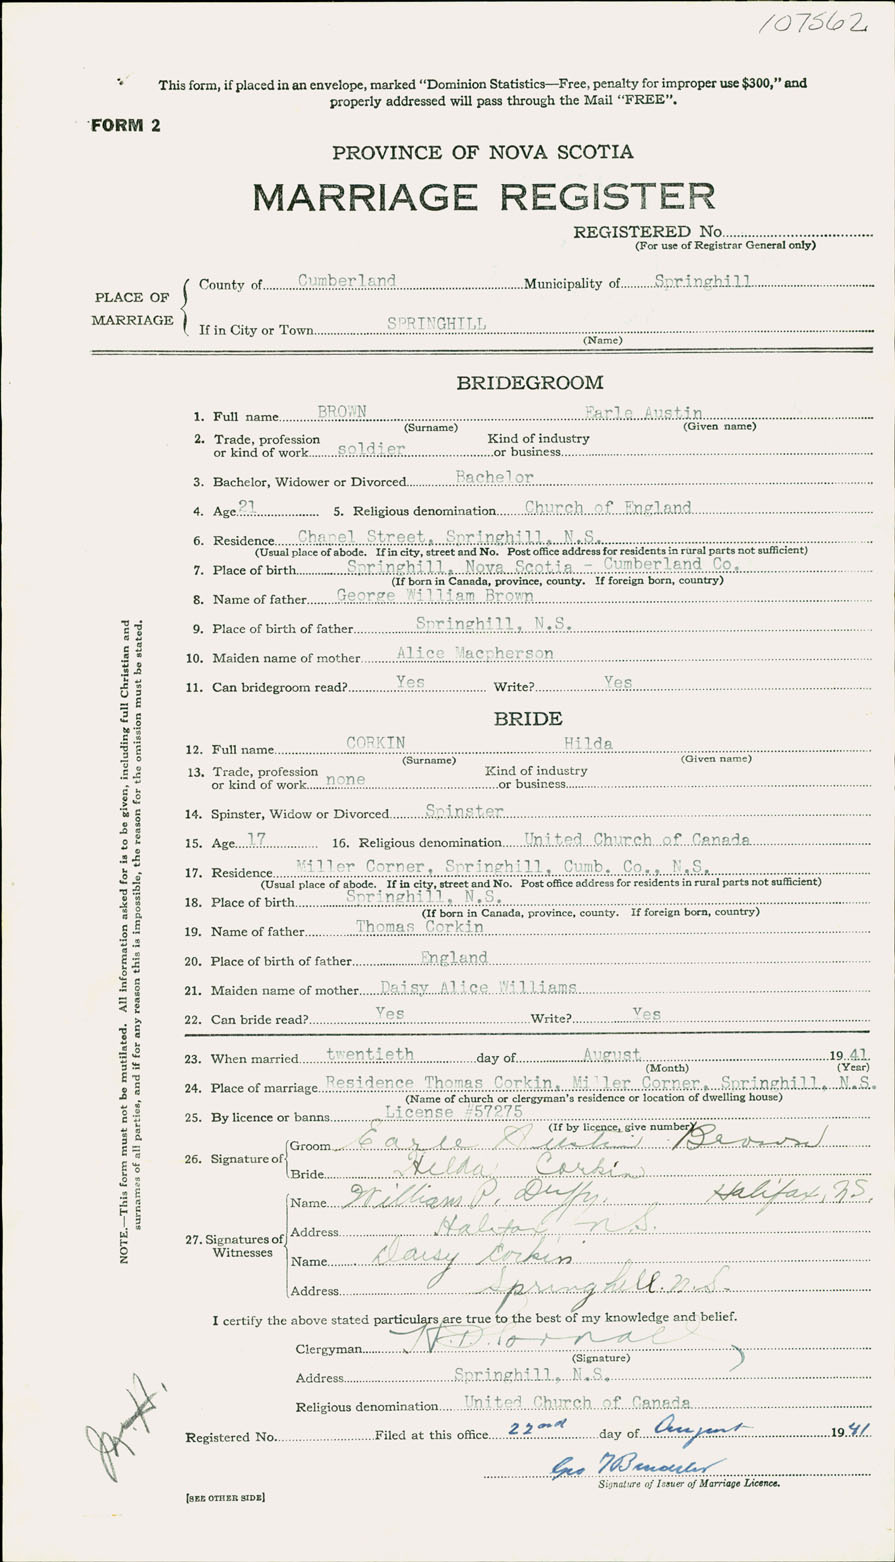 107562
This form, if placed in an envelope, marked "Dominion Statistics—Free, penalty for improper use $300," and
properly addressed will pass through the Mail "FREE".
FORM 2
PROVINCE OF NOVA SCOTIA
MARRIAGE REGISTER
REGISTERED No.
(For use of Registrar General only)
PLACE OF MARRIAGE
County of Cumberland Municipality of Springhill
If in City or Town SPRINGHILL
(Name)
BRIDEGROOM
1. Full name BROWN Earle Austin
(Surname) (Given name)
2. Trade, profession or kind of work soldier Kind of industry or business
3. Bachelor, Widower or Divorced Bachelor
4. Age 21 5. Religious denomination Church of England
6. Residence Chapel Street, Springhill, N.S.
(Usual place of abode. If in city, street and No. Post office address for residents in rural parts not sufficient)
7. Place of birth Springhill, Nova Scotia - Cumberland Co.
(If born in Canada, province, county. If foreign born, country)
8. Name of father George William Brown
9. Place of birth of father Springhill, N.S.
10. Maiden name of mother Alice Macpherson
11. Can bridegroom read? Yes Write? Yes
BRIDE
12. Full name CORKIN Hilda
(Surname) (Given name)
13. Trade, profession or kind of work none Kind of industry or business
14. Spinster, Widow or Divorced Spinster
15. Age 17 16. Religious denomination United Church of Canada
17. Residence Miller Corner, Springhill, Cumb. Co., N.S.
(Usual place of abode. If in city, street and No. Post office address for residents in rural parts not sufficient)
18. Place of birth Springhill, N.S.
(If born in Canada, province, county. If foreign born, country)
19. Name of father Thomas Corkin
20. Place of birth of father England
21. Maiden name of mother Daisy Alice Williams
22. Can bride read? Yes Write? Yes
23. When married twentieth day of August 1941
(Month) (Year)
24. Place of marriage Residence Thomas Corkin, Miller Corner, Springhill, N.S.
(Name of church or clergyman's residence or location of dwelling house)
25. By licence or banns License #57275
(If by licence, give number)
26. Signature of
Groom Earle Austin Brown
Bride Hilda Corkin
27. Signatures of Witnesses
Name William P. Duffy. Halifax, N.S.
Address Halifax, N.S.
Name Daisy Corkin
Address Springhill N.S.
I certify the above stated particulars are true to the best of my knowledge and belief.
Clergyman
(Signature)
Address Springhill, N.S.
Religious denomination United Church of Canada
Registered No. Filed at this office 22nd day of August 1941
Geo
Signature of Issuer of Marriage Licence.
[SEE OTHER SIDE]
NOTE.—This form must not be mutilated. All information asked for is to be given, including full Christian and
surnames of all parties, and if for any reason this is impossible, the reason for the omission must be stated.